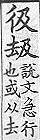 彶
說文急行
也或从去